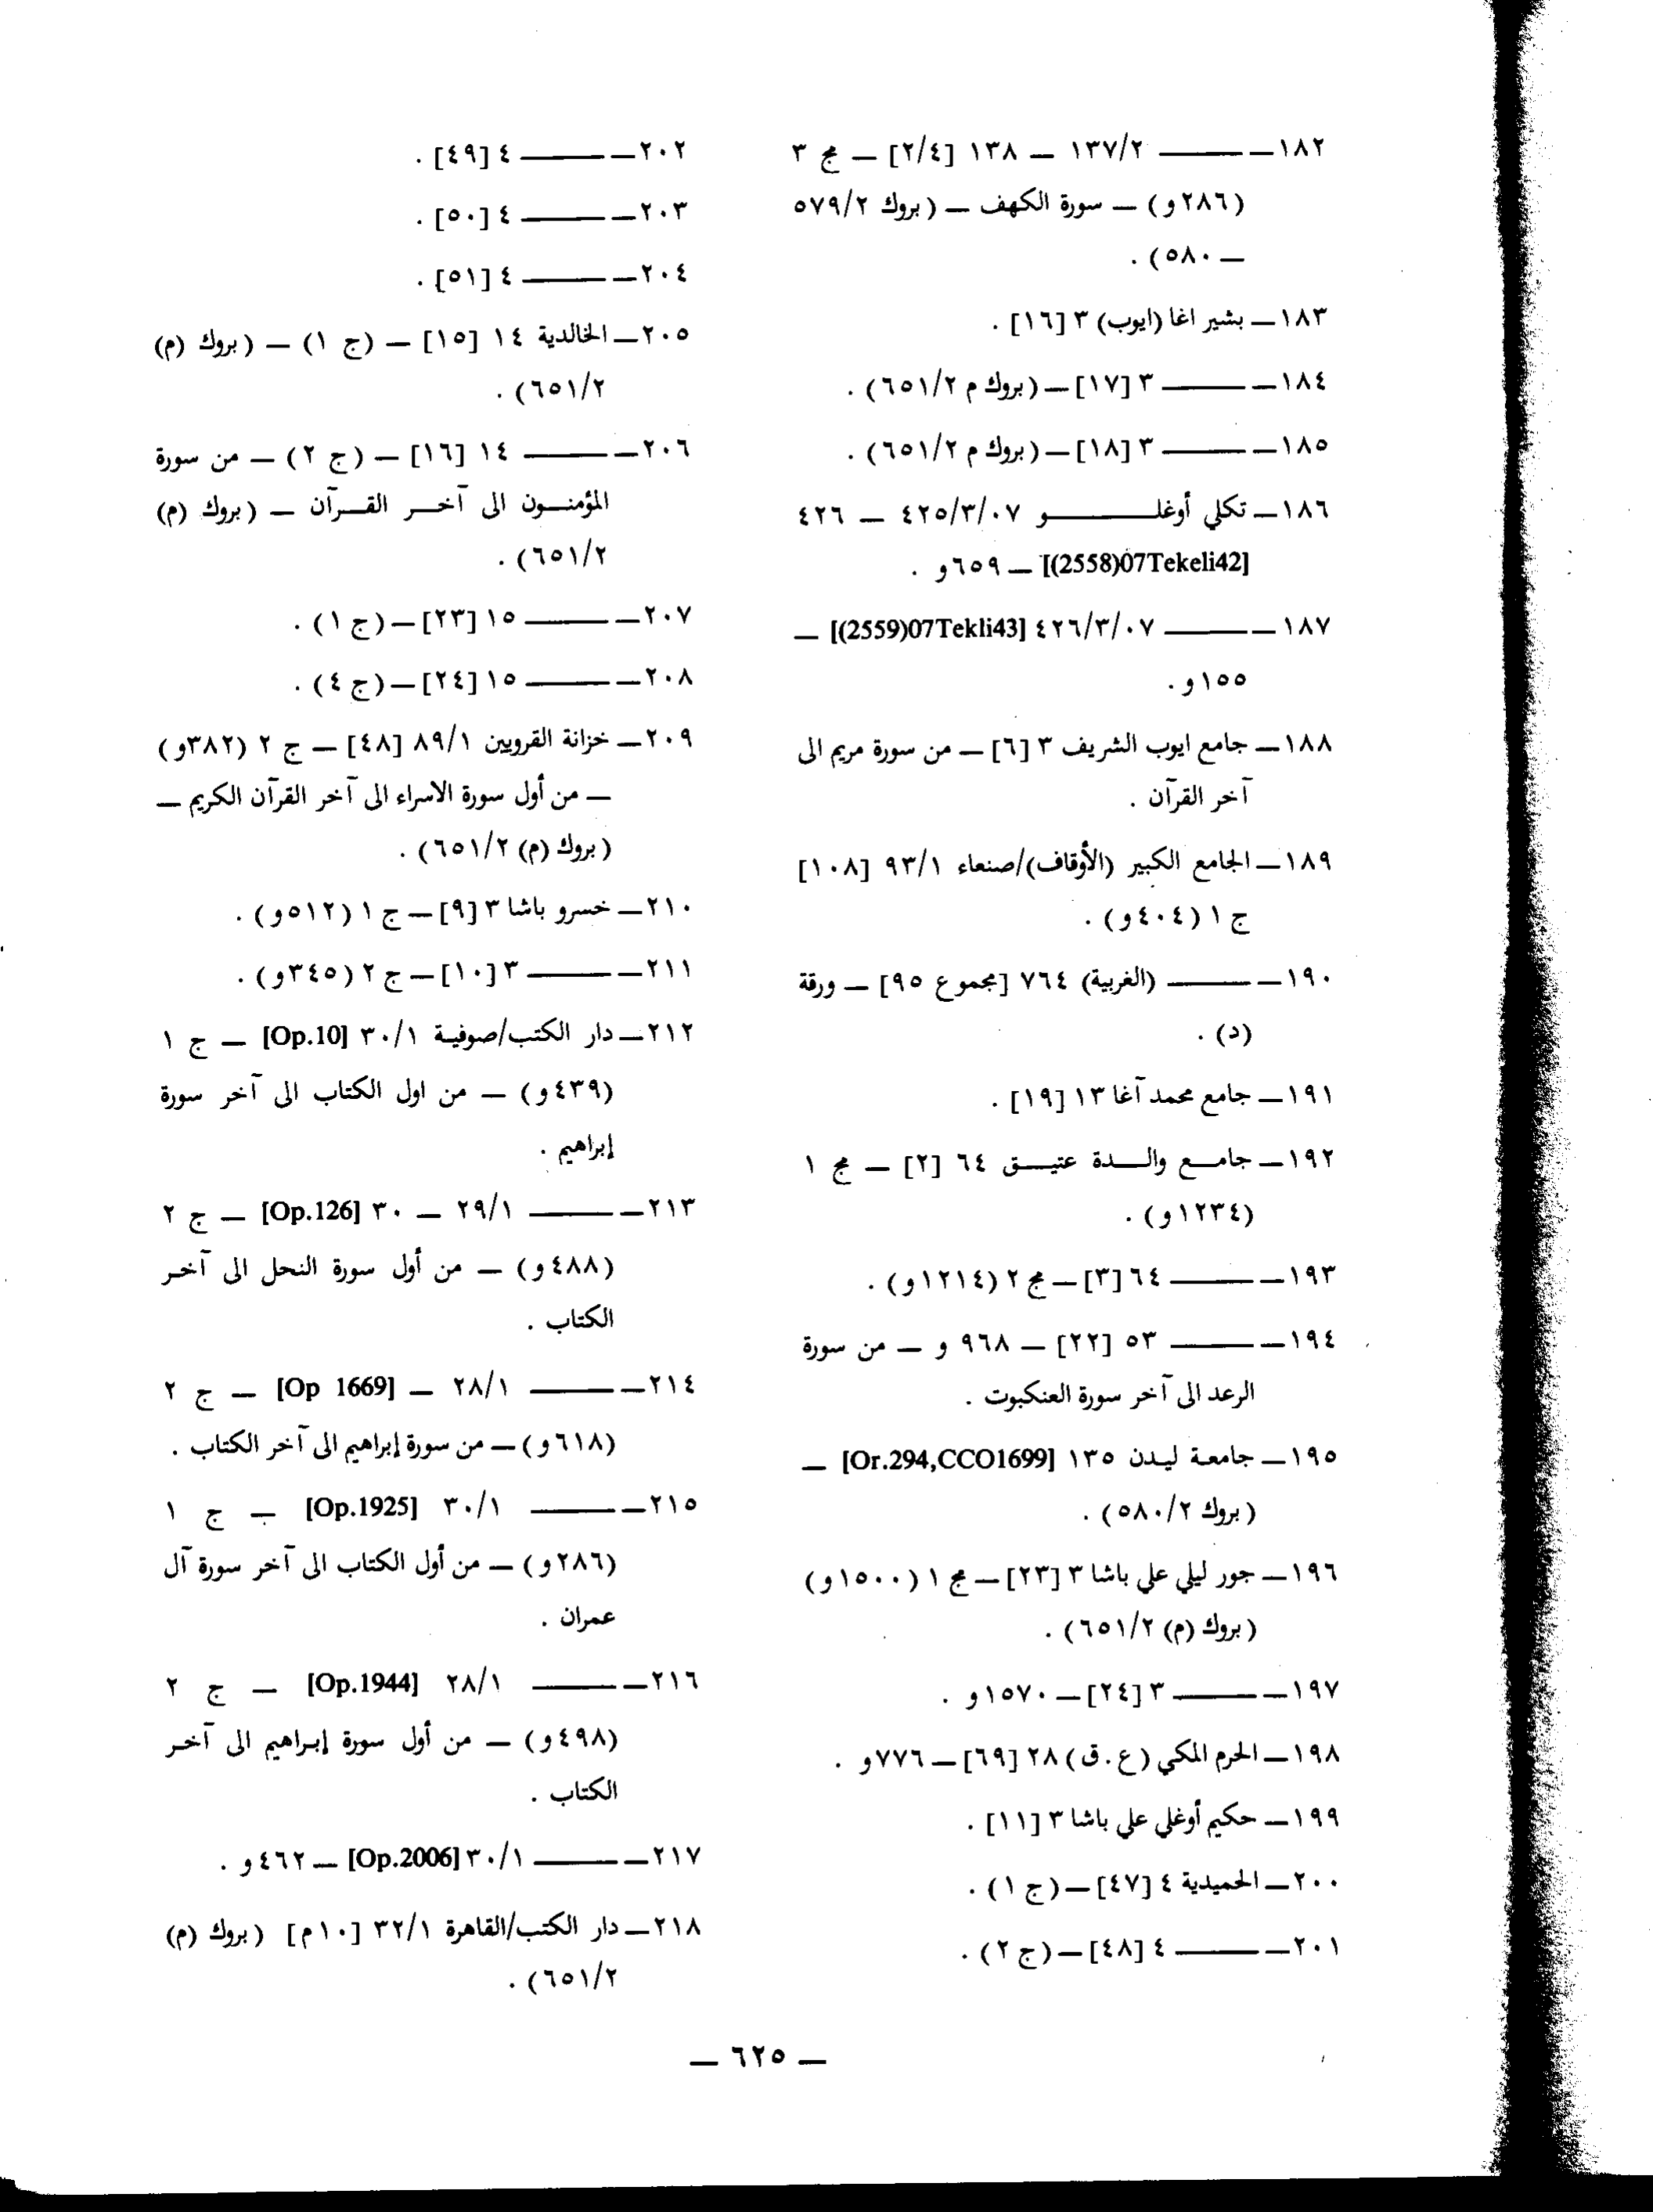 ١٨٢ــ ــــــــ ١٣٧/٢ ــ ١٣٨ [٢/٤] ــ مج ٣
(٢٨٦و) ــ سورة الكهف ــ (بروك ٥٧٩/٢
ــ ٥٨٠) .
١٨٣ــ بشير اغا (ايوب) ٣ [١٦] .
١٨٤ــ ــــــــ ٣ [١٧] ــ (بروك م ٦٥١/٢) .
١٨٥ــ ــــــــ ٣ [١٨] ــ (بروك م ٦٥١/٢) .
١٨٦ــ تكلي أوغلــــــــو ٤٢٥/٣/٠٧ ــ ٤٢٦
[(2558)07Tekeli42] ــ ٦٥٩و .
١٨٧ــ ــــــــ ٤٢٦/٣/٠٧ [(2559)07Tekli43] ــ
١٥٥و .
١٨٨ــ جامع ايوب الشريف ٣ [٦] ــ من سورة مريم الى
آخر القرآن .
١٨٩ــ الجامع الكبير (الأوقاف)/صنعاء ٩٣/١ [١٠٨]
ج ١ (٤٠٤و) .
١٩٠ــ ــــــــ (الغربية) ٧٦٤ [مجموع ٩٥] ــ ورقة
(د) .
١٩١ــ جامع محمد آغا ١٣ [١٩] .
١٩٢ــ جامــع والــدة عتيــق ٦٤ [٢] ــ مج ١
(١٢٣٤و) .
١٩٣ــ ــــــــ ٦٤ [٣] ــ مج ٢ (١٢١٤و) .
١٩٤ــ ــــــــ ٥٣ [٢٢] ــ ٩٦٨ و ــ من سورة
الرعد الى آخر سورة العنكبوت .
١٩٥ــ جامعة ليدن ١٣٥ [Or.294,CCO1699] ــ
(بروك ٥٨٠/٢) .
١٩٦ــ جور ليلي علي باشا ٣ [٢٣] ــ مج ١ (١٥٠٠و)
(بروك (م) ٦٥١/٢) .
١٩٧ــ ــــــــ ٣ [٢٤] ــ ١٥٧٠و .
١٩٨ــ الحرم المكي (ع.ق) ٢٨ [٦٩] ــ ٧٧٦و .
١٩٩ــ حكيم أوغلي علي باشا ٣ [١١] .
٢٠٠ــ الحميدية ٤ [٤٧] ــ (ج ١) .
٢٠١ــ ــــــــ ٤ [٤٨] ــ (ج ٢) .
٢٠٢ــ ــــــــ ٤ [٤٩] .
٢٠٣ــ ــــــــ ٤ [٥٠] .
٢٠٤ــ ــــــــ ٤ [٥١] .
٢٠٥ــ الخالدية ١٤ [١٥] ــ (ج ١) ــ (بروك (م)
٦٥١/٢) .
٢٠٦ــ ــــــــ ١٤ [١٦] ــ (ج ٢) ــ من سورة
المؤمنــون الى آخــر القــرآن ــ (بروك (م)
٦٥١/٢) .
٢٠٧ــ ــــــــ ١٥ [٢٣] ــ (ج ١) .
٢٠٨ــ ــــــــ ١٥ [٢٤] ــ (ج ٤) .
٢٠٩ــ خزانة القرويين ٨٩/١ [٤٨] ــ ج ٢ (٣٨٢و)
ــ من أول سورة الاسراء الى آخر القرآن الكريم ــ
(بروك (م) ٦٥١/٢) .
٢١٠ــ خسرو باشا ٣ [٩] ــ ج ١ (٥١٢و) .
٢١١ــ ــــــــ ٣ [١٠] ــ ج ٢ (٣٤٥و) .
٢١٢ــ دار الكتب/صوفية ٣٠/١ [Op.10] ــ ج ١
(٤٣٩و) ــ من اول الكتاب الى آخر سورة
إبراهيم .
٢١٣ــ ــــــــ ٢٩/١ ــ ٣٠ [Op.126] ــ ج ٢
(٤٨٨و) ــ من أول سورة النحل الى آخر
الكتاب .
٢١٤ــ ــــــــ ٢٨/١ ــ [Op 1669] ــ ج ٢
(٦١٨و) ــ من سورة إبراهيم الى آخر الكتاب .
٢١٥ــ ــــــــ ٣٠/١ [Op.1925] ــ ج ١
(٢٨٦و) ــ من أول الكتاب الى آخر سورة آل
عمران .
٢١٦ــ ــــــــ ٢٨/١ [Op.1944] ــ ج ٢
(٤٩٨و) ــ من أول سورة إبراهيم الى آخر
الكتاب .
٢١٧ــ ــــــــ ٣٠/١ [Op.2006] ــ ٤٦٢و .
٢١٨ــ دار الكتب/القاهرة ٣٢/١ [١٠م] (بروك (م)
٦٥١/٢) .
ــ ٦٢٥ ــ